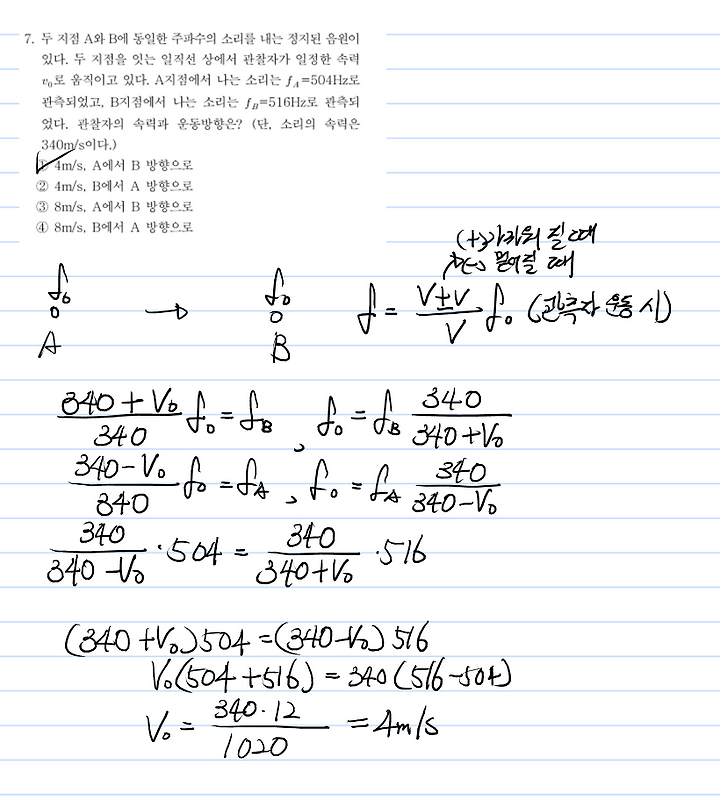 7. 두 지점 A와 B에 동일한 주파수의 소리를 내는 정지된 음원이
있다. 두 지점을 잇는 일직선 상에서 관찰자가 일정한 속력
v₀로 움직이고 있다. A지점에서 나는 소리는 f_A=504Hz로
관측되었고, B지점에서 나는 소리는 f_B=516Hz로 관측되
었다. 관찰자의 속력과 운동방향은? (단, 소리의 속력은
340m/s이다.)
① 4m/s, A에서 B 방향으로
② 4m/s, B에서 A 방향으로
③ 8m/s, A에서 B 방향으로
④ 8m/s, B에서 A 방향으로
(+)가까워 질 때
(-) 멀어질 때
f₀ → f₀ f = (V±V)/V f₀ (관측자 운동 시)
A B
(340+V₀)/340 f₀ = f_B , f₀ = f_B 340/(340+V₀)
(340-V₀)/340 f₀ = f_A , f₀ = f_A 340/(340-V₀)
340/(340-V₀) · 504 = 340/(340+V₀) · 516
(340+V₀)504 = (340-V₀)516
V₀(504+516) = 340(516-504)
V₀ = 340·12/1020 = 4m/s